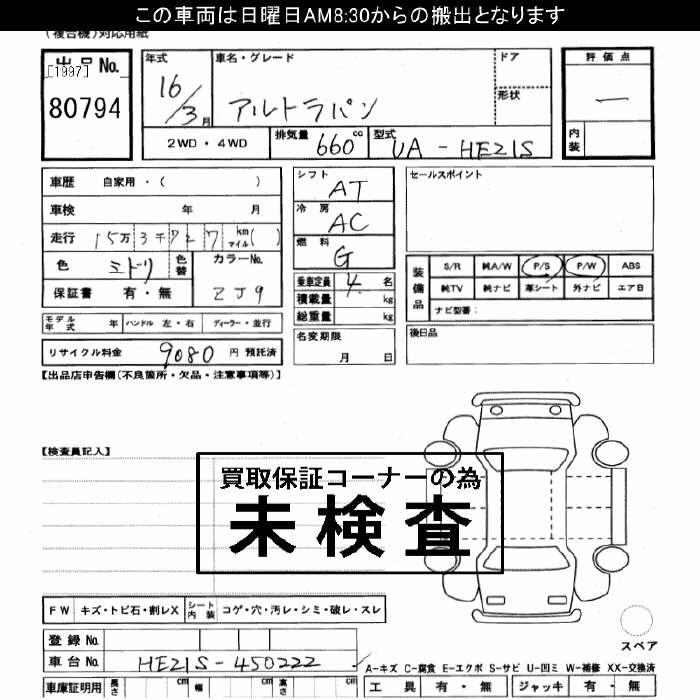 この車両は日曜日AM8:30からの搬出となります
(複合機)対応用紙
出品No.
[1997]
80794
年式
16/3月
車名・グレード
アルトラパン
ドア
形状
評価点
一
内装
2WD・4WD
排気量 660cc
型式 UA-HE21S
車歴 自家用・( )
車検 年 月
走行 15万3千727 km マイル( )
色 ミドリ
色替
カラーNo.
ZJ9
保証書 有・無
シフト
AT
冷房
AC
燃料
G
乗車定員 4名
積載量 kg
総重量 kg
セールスポイント
装備品
S/R 純A/W P/S P/W ABS
純TV 純ナビ 革シート 外ナビ エアB
ナビ型番:
モデル年式 年 ハンドル 左・右 ディーラー・並行
リサイクル料金 9080 円 預託済
名変期限
月 日
後日品
【出品店申告欄(不良箇所・欠品・注意事項等)】
【検査員記入】
買取保証コーナーの為
未検査
FW キズ・トビ石・割レX
シート内装 コゲ・穴・汚レ・シミ・破レ・スレ
登録No.
車台No. HE21S-450222
スペア
A-キズ C-腐食 E-エクボ S-サビ U-凹ミ W-補修 XX-交換済
車庫証明用 長さ cm 幅 cm 高さ cm
工具 有・無 ジャッキ 有・無